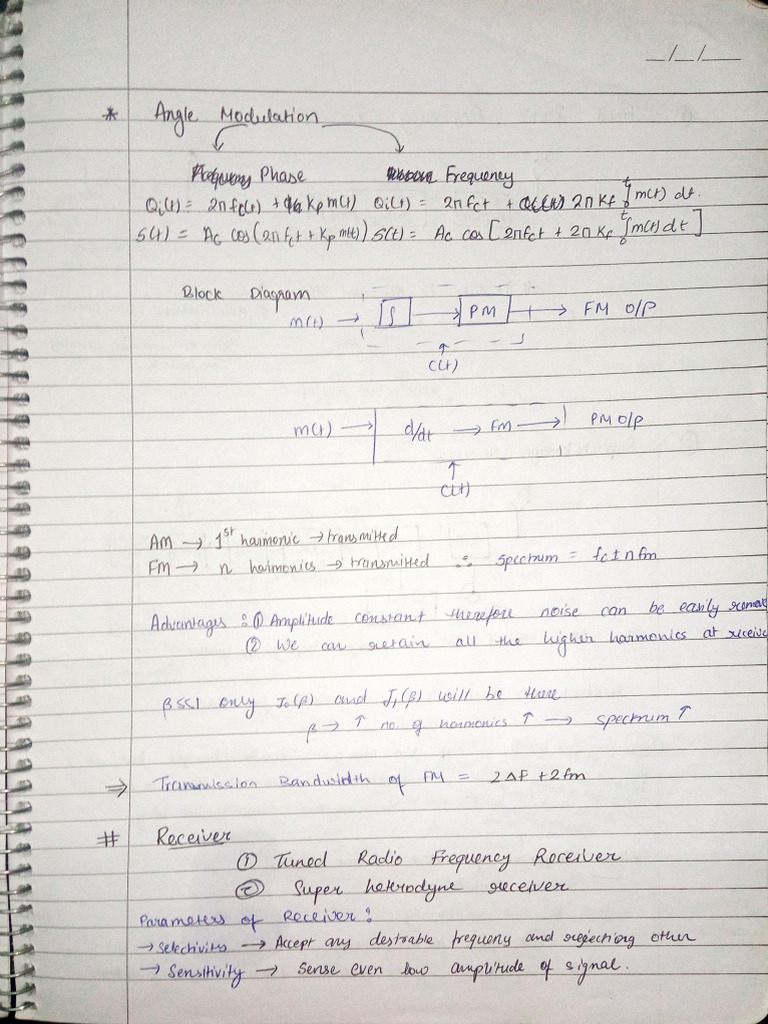 _/_/__
* Angle Modulation
Phase Frequency
Qi(t) = 2πfc(t) + Kp m(t) Qi(t) = 2πfct + 2πKf ∫₀ᵗ m(t) dt.
S(t) = Ac cos(2πfct + Kp m(t)) S(t) = Ac cos[2πfct + 2πKf ∫₀ᵗ m(t) dt]
Block Diagram
m(t) → ∫ → PM → FM O/P
C(t)
m(t) → d/dt → FM → PM O/P
C(t)
AM → 1st harmonic → transmitted
FM → n harmonics → transmitted ∴ spectrum = fc ± nfm
Advantages : ① Amplitude constant therefore noise can be easily
② We can retain all the higher harmonics at
β<<1 only J₀(β) and J₁(β) will be there
β → ↑ no. of harmonics ↑ → spectrum ↑
⇒ Transmission Bandwidth of FM = 2Δf + 2fm
# Receiver
① Tuned Radio Frequency Receiver
② Super heterodyne receiver
Parameters of Receiver :
→ Selectivity → Accept any desirable frequency and rejecting other
→ Sensitivity → Sense even low amplitude of signal.